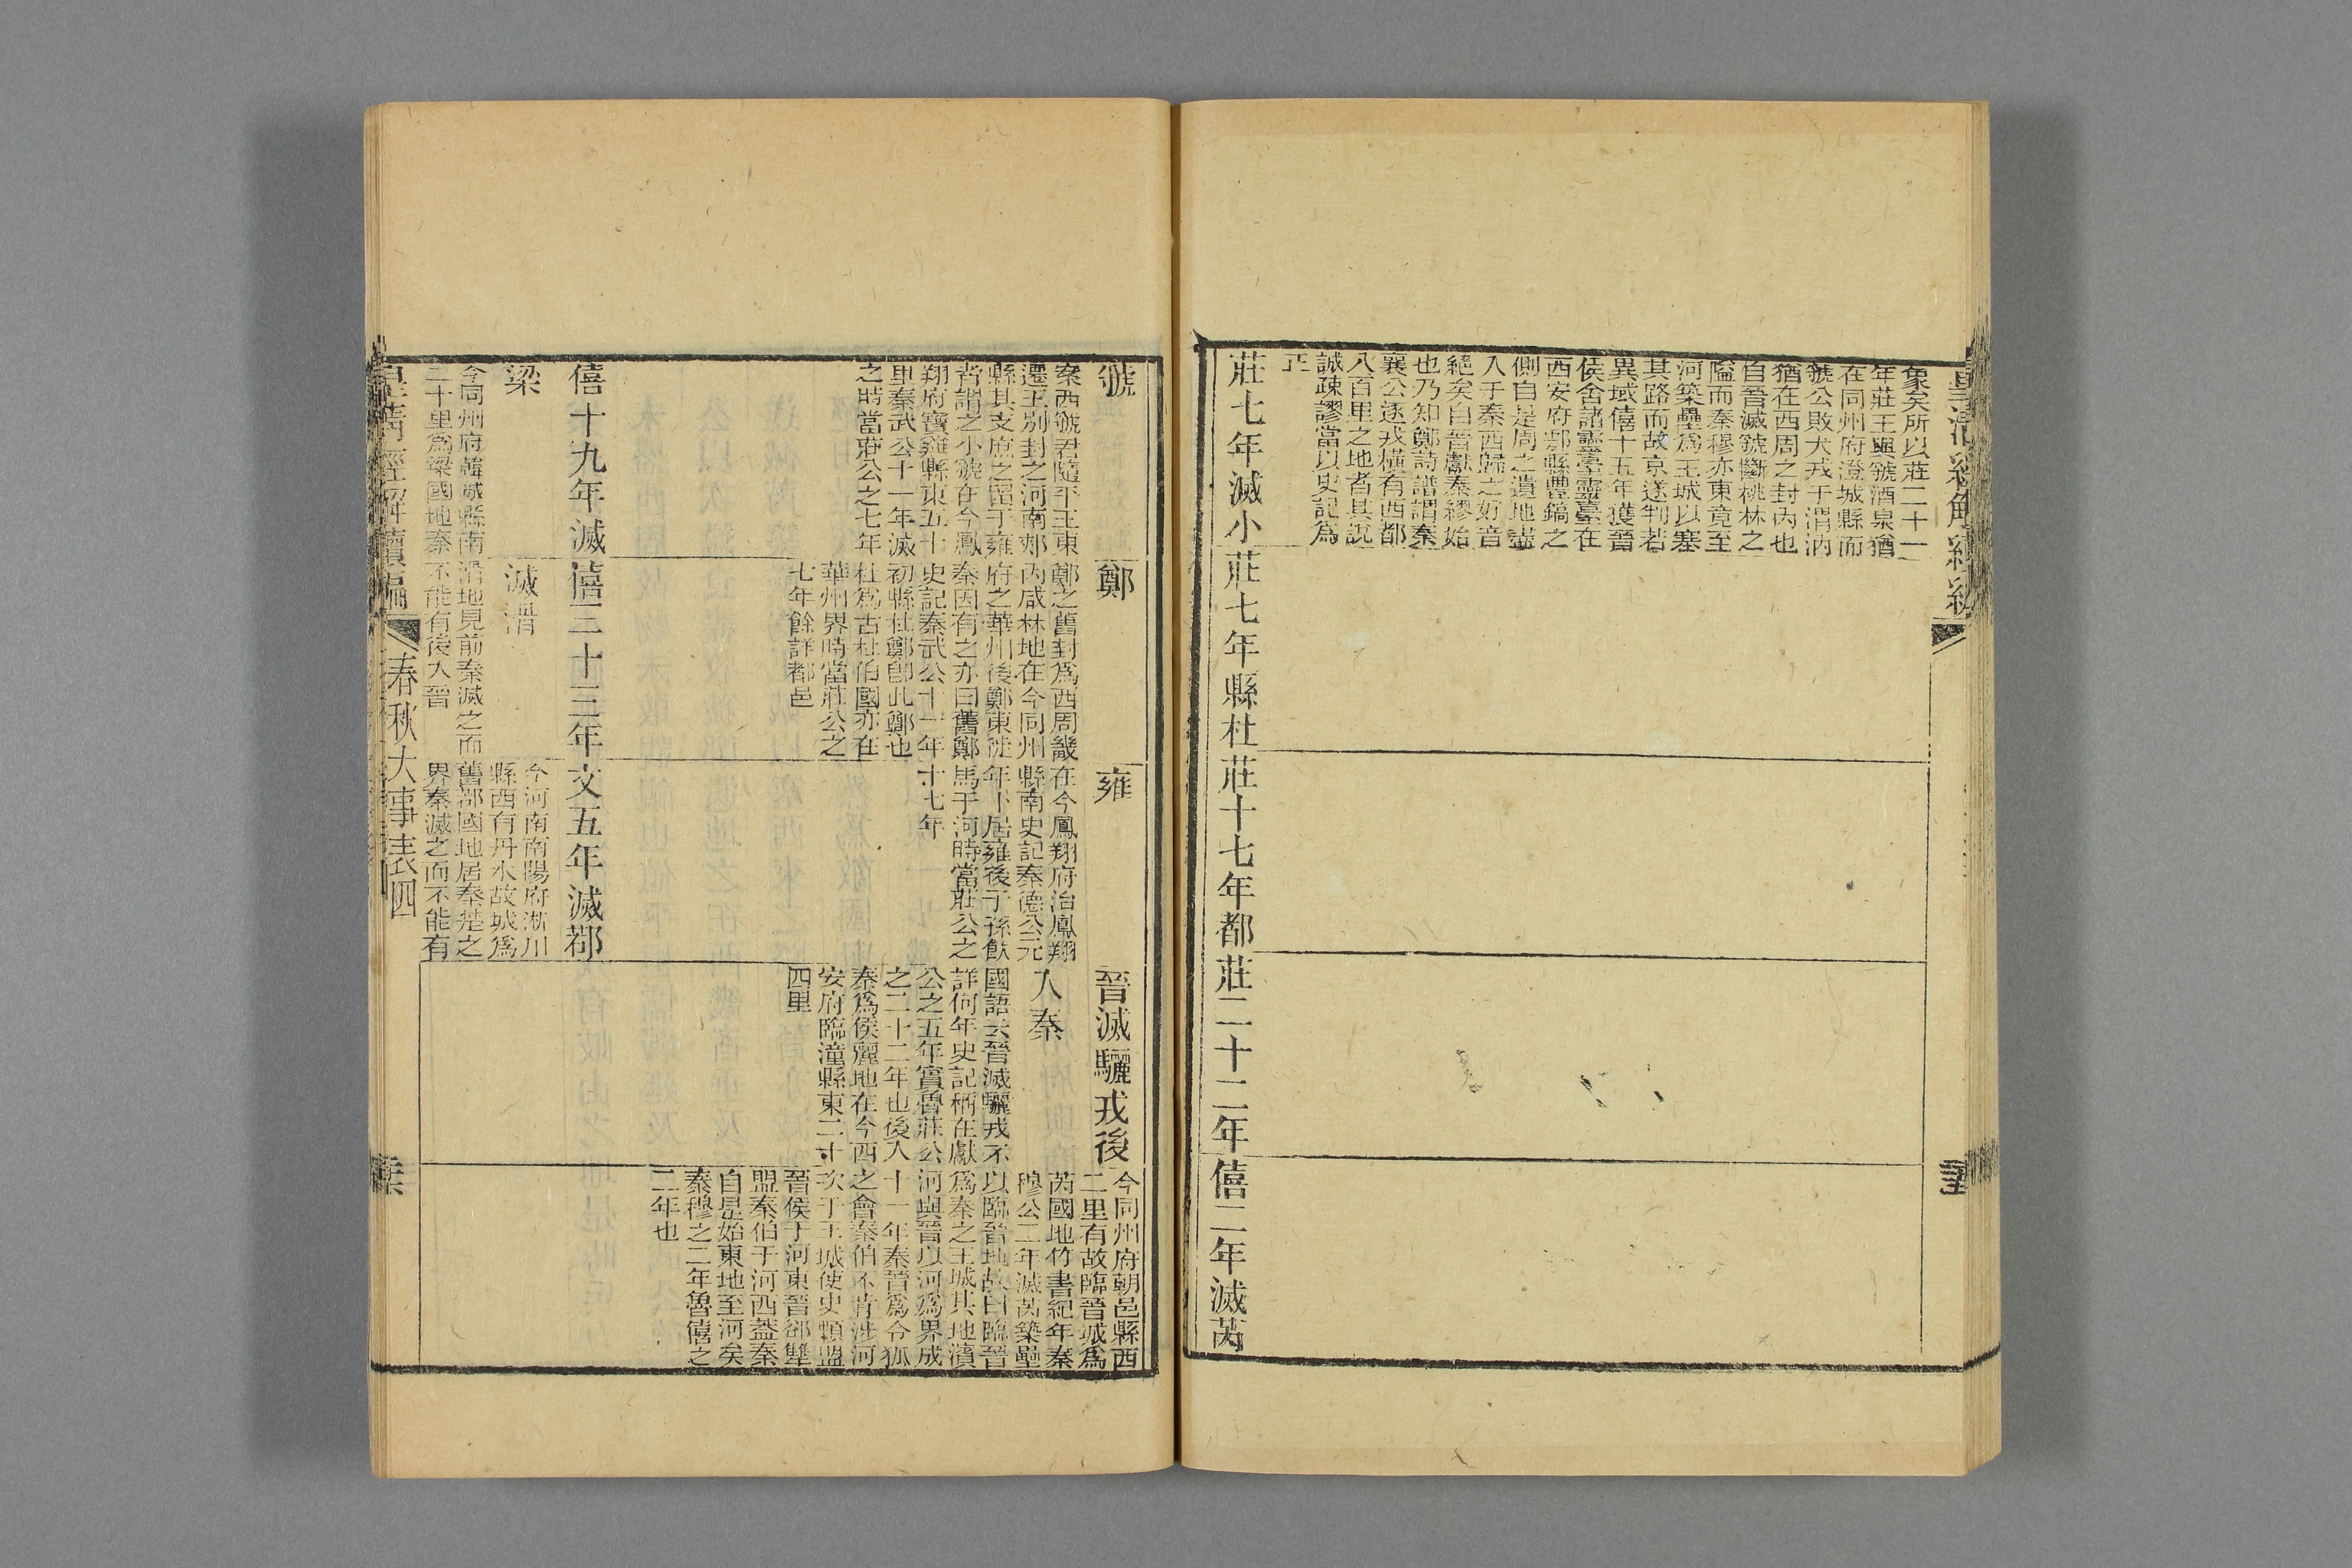 皇清經解續編
象矣所以莊二十一
年莊王與虢酒泉猶
在同州府澄城縣而
虢公敗犬戎于渭汭
猶在西周之封內也
自晉滅虢斷桃林之
隘而秦穆亦東竟至
河築壘爲王城以塞
其路而故京遂判若
異域僖十五年獲晉
侯舍諸靈臺靈臺在
西安府鄠縣豐鎬之
側自是周之遺地盡
入于秦西歸之好音
絕矣自晉獻秦繆始
也乃知鄭詩譜謂秦
襄公逐戎橫有西都
八百里之地者其說
誠疎謬當以史記爲
正
莊七年滅小
莊七年縣杜
莊十七年都
莊二十二年
僖二年滅芮
虢
案西虢君隨平王東
遷王別封之河南郟
縣其支庶之留于雍
者謂之小虢在今鳳
翔府寶雞縣東五十
里秦武公十一年滅
之時當莊公之七年
鄭
鄭之舊封爲西周畿
內咸林地在今同州
府之華州後鄭東徙
秦因有之亦曰舊鄭
史記秦武公十一年
初縣杜鄭卽此鄭也
杜爲古杜伯國亦在
華州界時當莊公之
七年餘詳都邑
雍
在今鳳翔府治鳳翔
縣南史記秦德公元
年卜居雍後子孫飲
馬于河時當莊公之
十七年
晉滅驪戎後
入秦
國語云晉滅驪戎不
詳何年史記稱在獻
公之五年實魯莊公
之二十二年也後入
秦爲侯麗地在今西
安府臨潼縣東二十
四里
今同州府朝邑縣西
二里有故臨晉城爲
芮國地竹書紀年秦
穆公二年滅芮築壘
以臨晉地故曰臨晉
爲秦之王城其地濱
河與晉以河爲界成
十一年秦晉爲令狐
之會秦伯不肯涉河
次于王城使史顆盟
晉侯于河東晉郤犨
盟秦伯于河西蓋秦
自是始東地至河矣
秦穆之二年魯僖之
二年也
僖十九年滅
僖三十三年
文五年滅鄀
梁
今同州府韓城縣南
二十里爲梁國地秦
滅滑
滑地見前秦滅之而
不能有後入晉
今河南南陽府淅川
縣西有丹水故城爲
舊鄀國地居秦楚之
界秦滅之而不能有
皇清經解續編
春秋大事表四